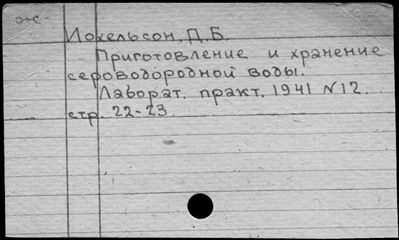 Иохельсон, Д. Б.
Приготовление и хранение
сероводородной воды.
Лаборат. практ. 1941 N12.
стр. 22-23.